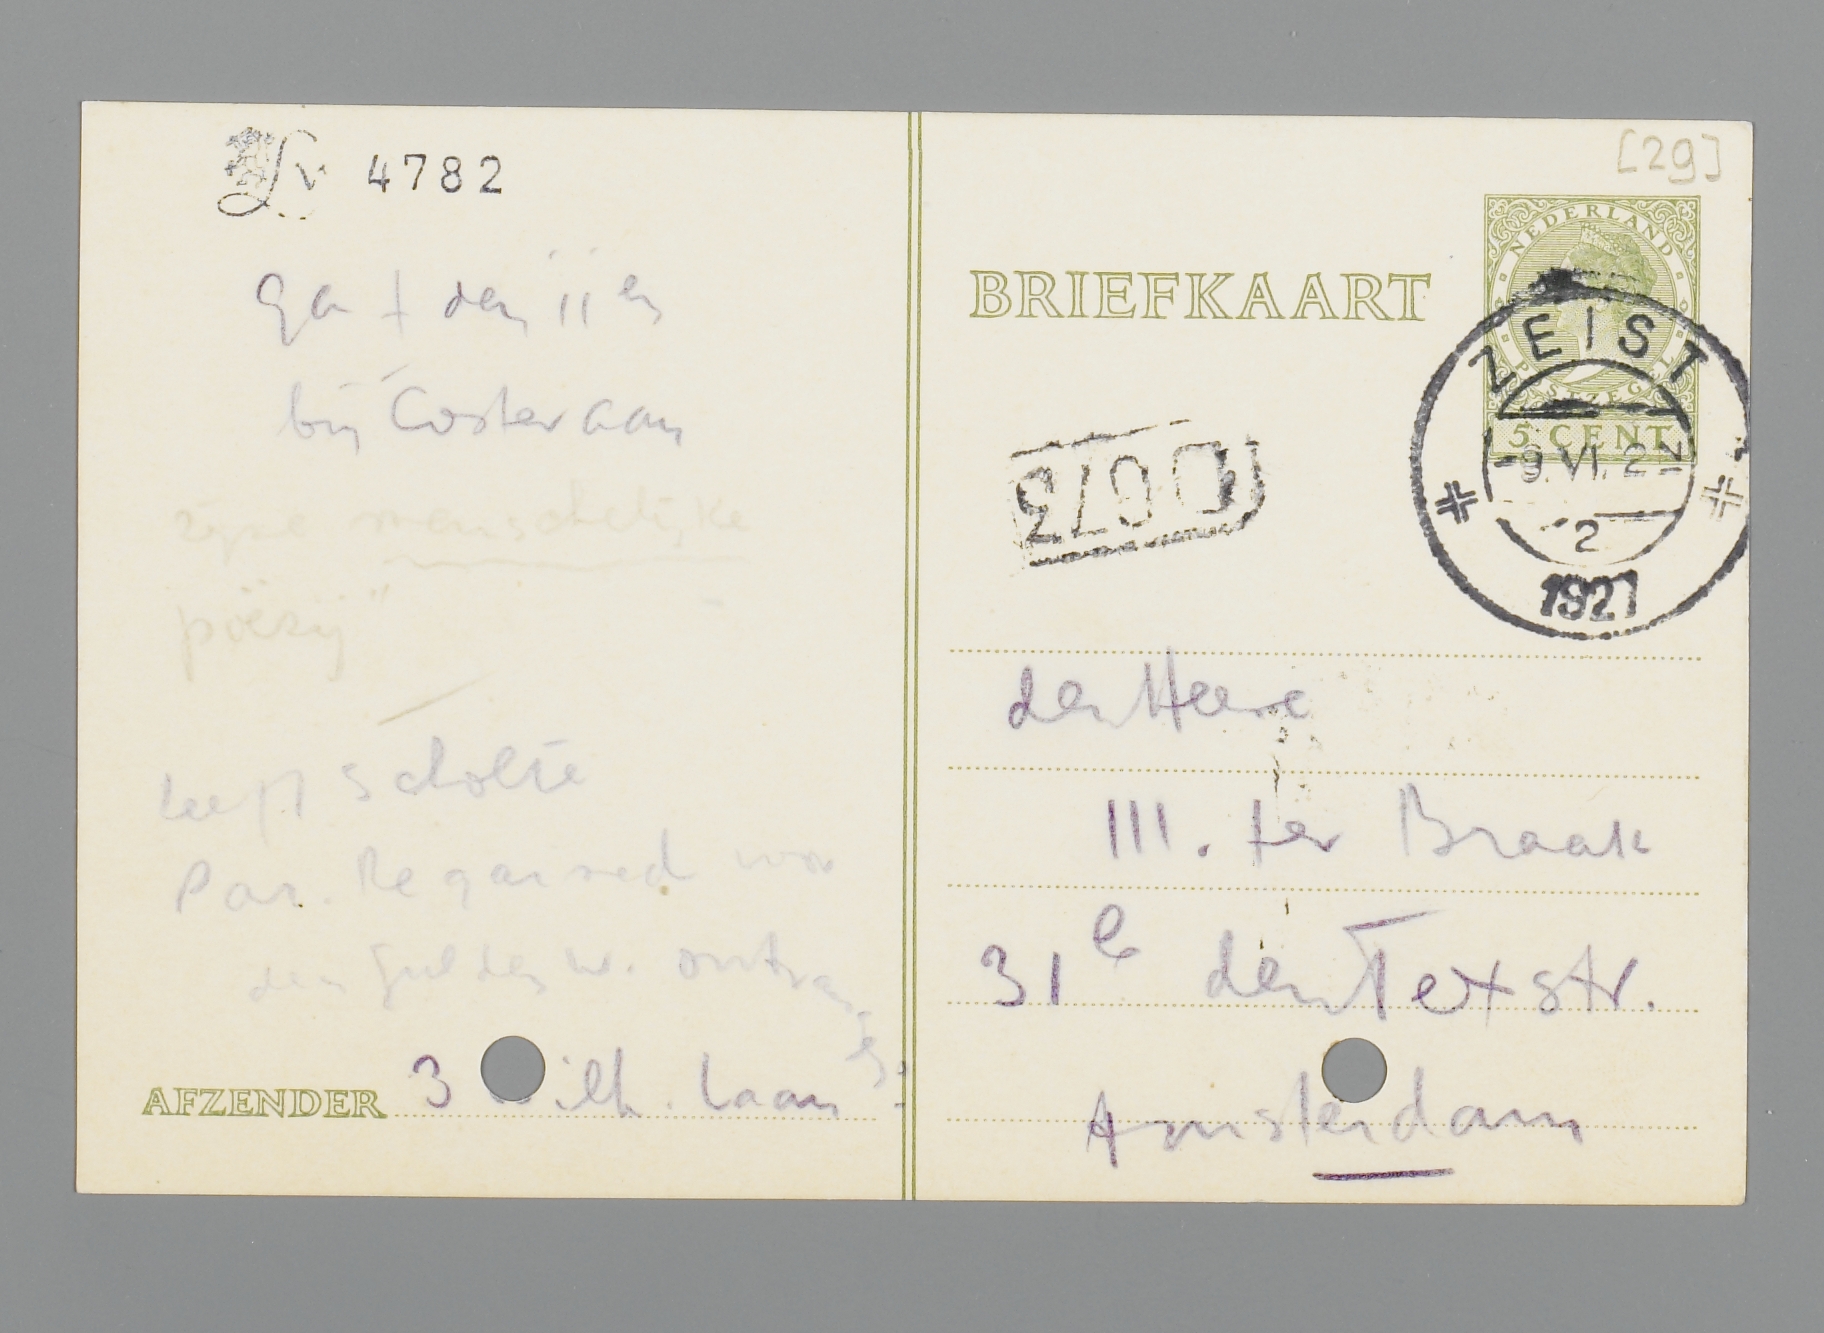 4782
Ga ± den 11en
bij Coster aan
zijne menschelijke
poëzij"
heeft Scholte
Par. Regained voor
den Gulden W. ontvan
AFZENDER 3 Wilh. laan
[29]
NEDERLAND
POSTZEGEL
5 CENT
BRIEFKAART
ZEIST
-9.VI.27
2
1927
den Heere
M. ter Braak
31e den Texstr.
Amsterdam